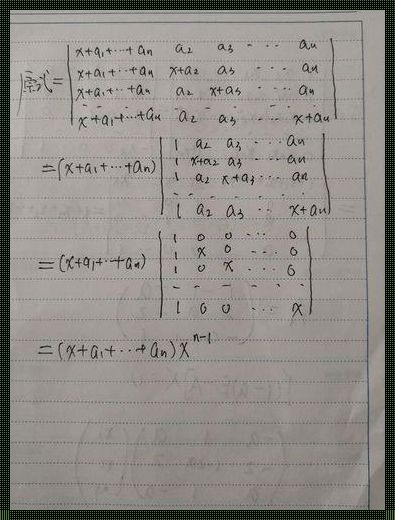 原式= | x+a₁+⋯+aₙ a₂ a₃ ⋯ aₙ |
| x+a₁+⋯+aₙ x+a₂ a₃ ⋯ aₙ |
| x+a₁+⋯+aₙ a₂ x+a₃ ⋯ aₙ |
| - - - - - - - - |
| x+a₁+⋯+aₙ a₂ a₃ ⋯ x+aₙ |
=(x+a₁+⋯+aₙ) | 1 a₂ a₃ ⋯ aₙ |
| 1 x+a₂ a₃ ⋯ aₙ |
| 1 a₂ x+a₃ ⋯ aₙ |
| - - - - - - - |
| 1 a₂ a₃ ⋯ x+aₙ |
=(x+a₁+⋯+aₙ) | 1 0 0 ⋯ 0 |
| 1 x 0 ⋯ 0 |
| 1 0 x ⋯ 0 |
| - - - - - - |
| 1 0 0 ⋯ x |
=(x+a₁+⋯+aₙ)xⁿ⁻¹